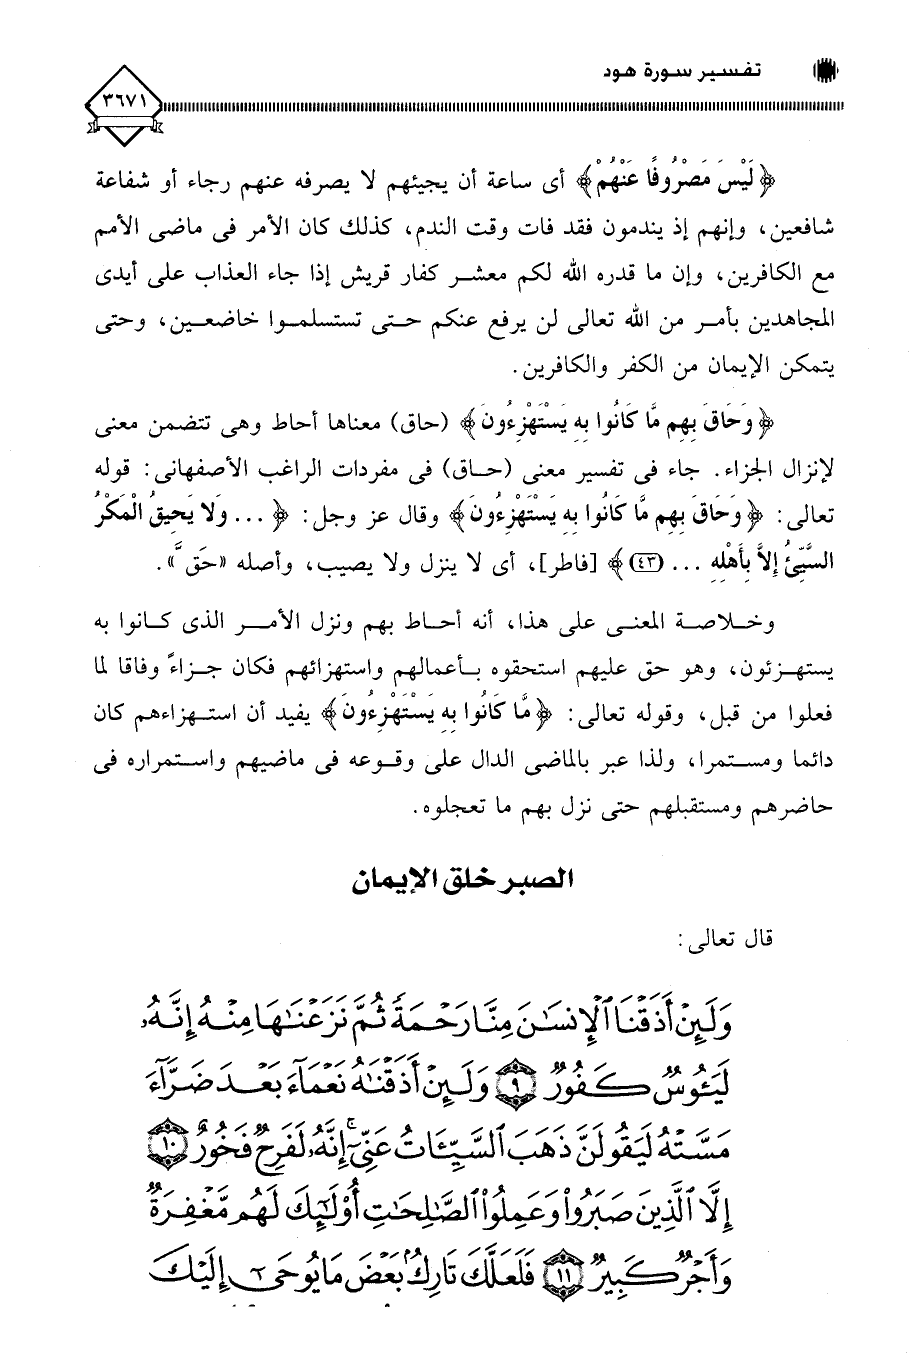 تفسير سورة هود
٣٦٧١
﴿لَيْسَ مَصْرُوفًا عَنْهُمْ﴾ أى ساعة أن يجيئهم لا يصرفه عنهم رجاء أو شفاعة
شافعين، وإنهم إذ يندمون فقد فات وقت الندم، كذلك كان الأمر فى ماضى الأمم
مع الكافرين، وإن ما قدره الله لكم معشر كفار قريش إذا جاء العذاب على أيدى
المجاهدين بأمر من الله تعالى لن يرفع عنكم حتى تستسلموا خاضعين، وحتى
يتمكن الإيمان من الكفر والكافرين.
﴿وَحَاقَ بِهِم مَّا كَانُوا بِهِ يَسْتَهْزِءُونَ﴾ (حاق) معناها أحاط وهى تتضمن معنى
لإنزال الجزاء. جاء فى تفسير معنى (حاق) فى مفردات الراغب الأصفهانى: قوله
تعالى: ﴿وَحَاقَ بِهِم مَّا كَانُوا بِهِ يَسْتَهْزِءُونَ﴾ وقال عز وجل: ﴿... وَلا يَحِيقُ الْمَكْرُ
السَّيِّئُ إِلاَّ بِأَهْلِهِ ... (٤٣)﴾ [فاطر]، أى لا ينزل ولا يصيب، وأصله «حَقَّ».
وخلاصة المعنى على هذا، أنه أحاط بهم ونزل الأمر الذى كانوا به
يستهزئون، وهو حق عليهم استحقوه بأعمالهم واستهزائهم فكان جزاءً وفاقا لما
فعلوا من قبل، وقوله تعالى: ﴿مَّا كَانُوا بِهِ يَسْتَهْزِءُونَ﴾ يفيد أن استهزاءهم كان
دائما ومستمرا، ولذا عبر بالماضى الدال على وقوعه فى ماضيهم واستمراره فى
حاضرهم ومستقبلهم حتى نزل بهم ما تعجلوه.
الصبر خلق الإيمان
قال تعالى:
وَلَئِنْ أَذَقْنَا ٱلْإِنسَٰنَ مِنَّا رَحْمَةً ثُمَّ نَزَعْنَٰهَا مِنْهُ إِنَّهُۥ
لَيَـُٔوسٌ كَفُورٌ ٩ وَلَئِنْ أَذَقْنَٰهُ نَعْمَآءَ بَعْدَ ضَرَّآءَ
مَسَّتْهُ لَيَقُولَنَّ ذَهَبَ ٱلسَّيِّـَٔاتُ عَنِّىٓ ۚ إِنَّهُۥ لَفَرِحٌ فَخُورٌ ١٠
إِلَّا ٱلَّذِينَ صَبَرُوا۟ وَعَمِلُوا۟ ٱلصَّٰلِحَٰتِ أُو۟لَٰٓئِكَ لَهُم مَّغْفِرَةٌ
وَأَجْرٌ كَبِيرٌ ١١ فَلَعَلَّكَ تَارِكٌۢ بَعْضَ مَا يُوحَىٰٓ إِلَيْكَ